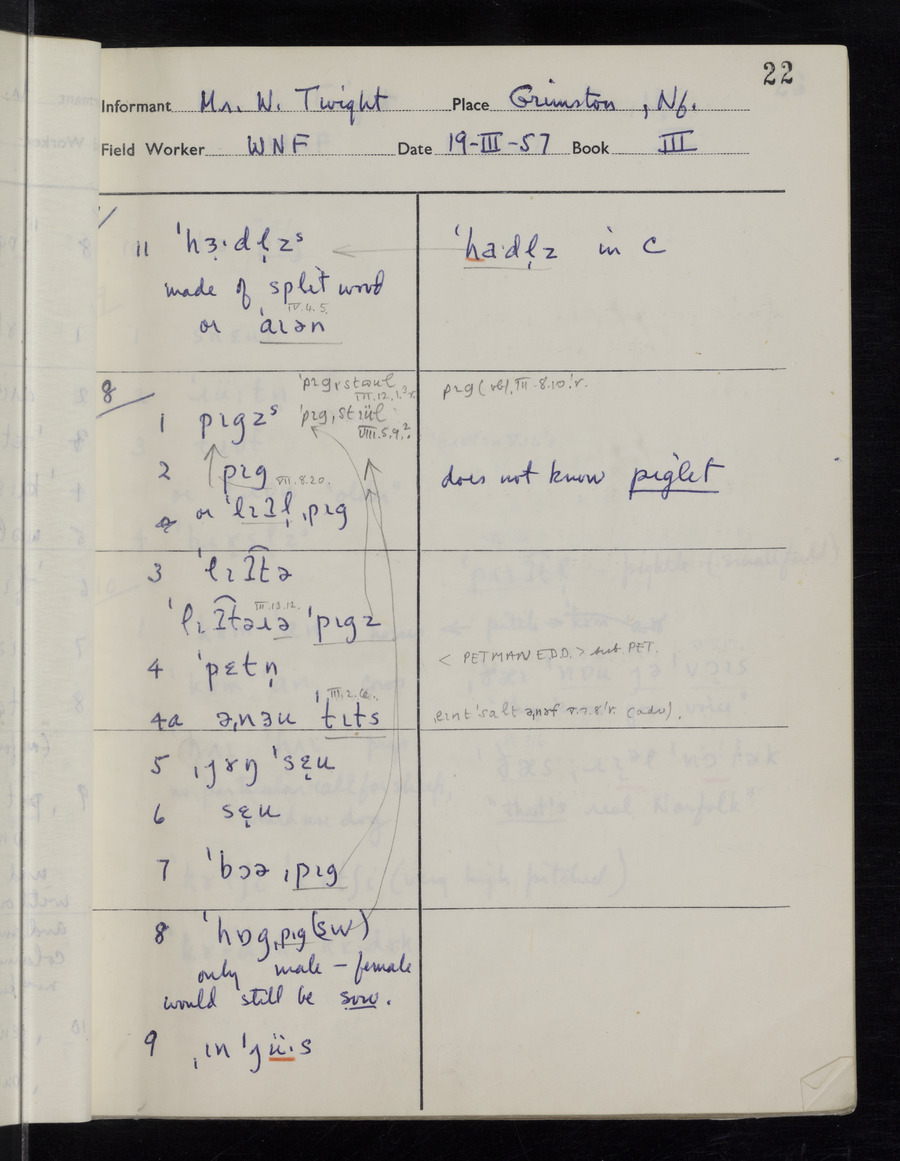 22
Informant Mr. W. Twight Place Grimston, Nf.
Field Worker WNF Date 19-III-57 Book III
11 ˈhɜ̣·dl̩zˢ ˈha·dl̩z in C
made of split wood
IV.4.5.
or ˈaɪən
8
ˈpɪgˌstəʊl III.12.1.²r. pɪg (vb), III.8.10.ˈr.
1 pɪgzˢ ˈpɪgˌstɪül VIII.5.9.²
2 pɪg VII.8.20. does not know piglet
or ˈlɪʔl̩ ˌpɪg
3 ˈlɪʔtə
ˈlɪʔtəɹə ˈpɪgz VII.13.12.
4 ˈpɛtn̩ < PETMAN E.D.D. > sub PET.
4a əˌnəu ˈtɪts III.2.6.
5 ˌjɤŋ ˈsɛ̣u
6 sɛ̣u
7 ˈbɔə ˌpɪg
8 ˈhɒgˌpɪg (sw)
only male – female
would still be sow.
9 ˌɪn ˈjü·s